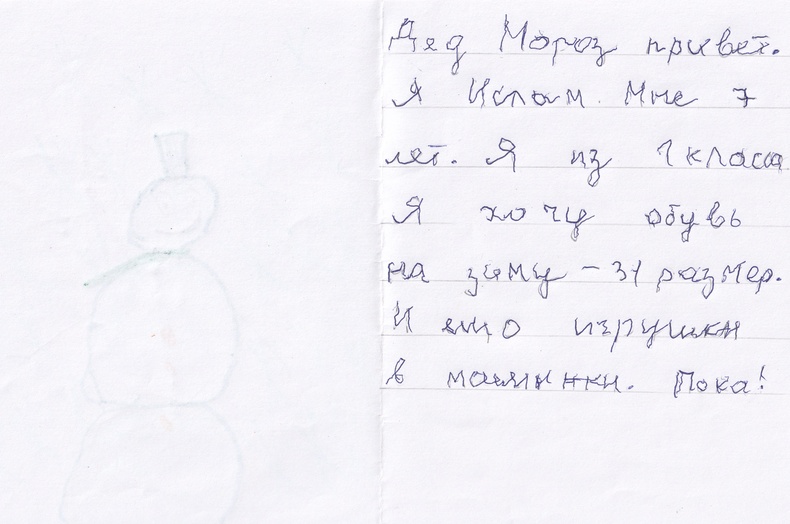 Дед Мороз привет.
Я Ислам. Мне 7
лет. Я из 1 класса
Я хочу обувь
на зиму - 31 размер.
И ищо игрушки
в машинки. Пока!